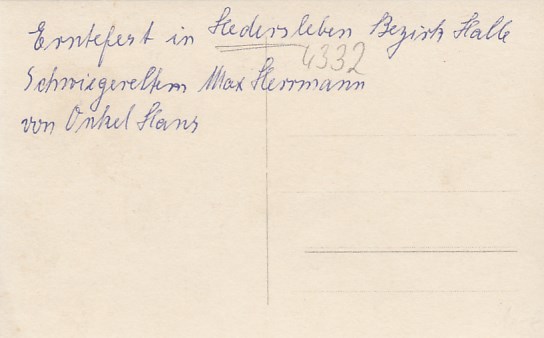 Erntefest in Hedersleben Bezirk Halle
4332
Schwiegereltern Max Herrmann
von Onkel Hans